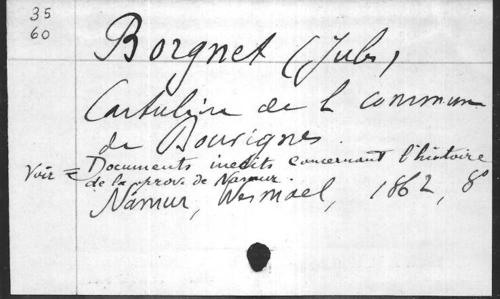 35
60
Borgnet (Jules)
Cartulaire de la commune
de Bouvignes.
Voir = Documents inédits concernant l'histoire
de la prov. de Namur.
Namur, Wesmael, 1862, 8°